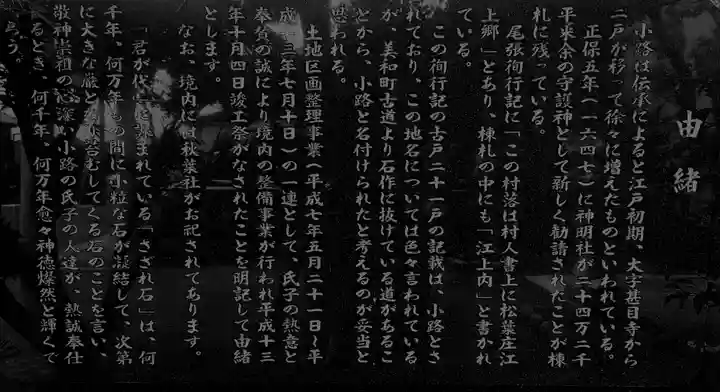 由緒
小路は伝承によると江戸初期、大字甚目寺から
二戸が移って徐々に増えたものといわれている。
正保五年(一六四七)に神明社が二十四万二千
平求余の守護神として新しく勧請されたことが棟
札に残っている。
尾張徇行記に「この村落は村人書上に松葉庄江
上郷」とあり、棟札の中にも「江上内」と書かれ
ている。
この徇行記の古戸二十一戸の記載は、小路とさ
れており、この地名については色々言われている
が、美和町古道より石作に抜けている道があるこ
とから、小路と名付けられたと考えるのが妥当と
思われる。
土地区画整理事業(平成七年五月二十一日~平
成十三年七月十日)の一連として、氏子の熱意と
奉賛の誠により境内の整備事業が行われ平成十三
年十月四日竣工祭がなされたことを明記して由緒
とします。
なお、境内には秋葉社がお祀されてあります。
「君が代」に詠まれている「さざれ石」は、何
千年、何万年もの間に小粒な石が凝結して、次第
に大きな巌となり苔むしてくる石のことを言い、
敬神崇祖の心深い小路の氏子の人達が、熱誠奉仕
するとき、何千年、何万年愈々神徳燦然と輝くで
あろう。